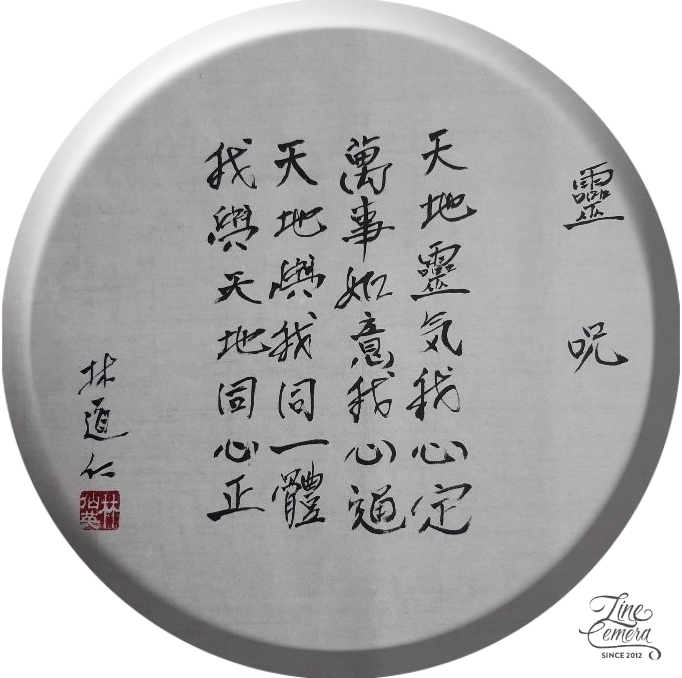 靈呪
天地靈気我心定
萬事如意我心通
天地與我同一體
我與天地同心正
林道仁
林仙英
Line Camera
SINCE 2012